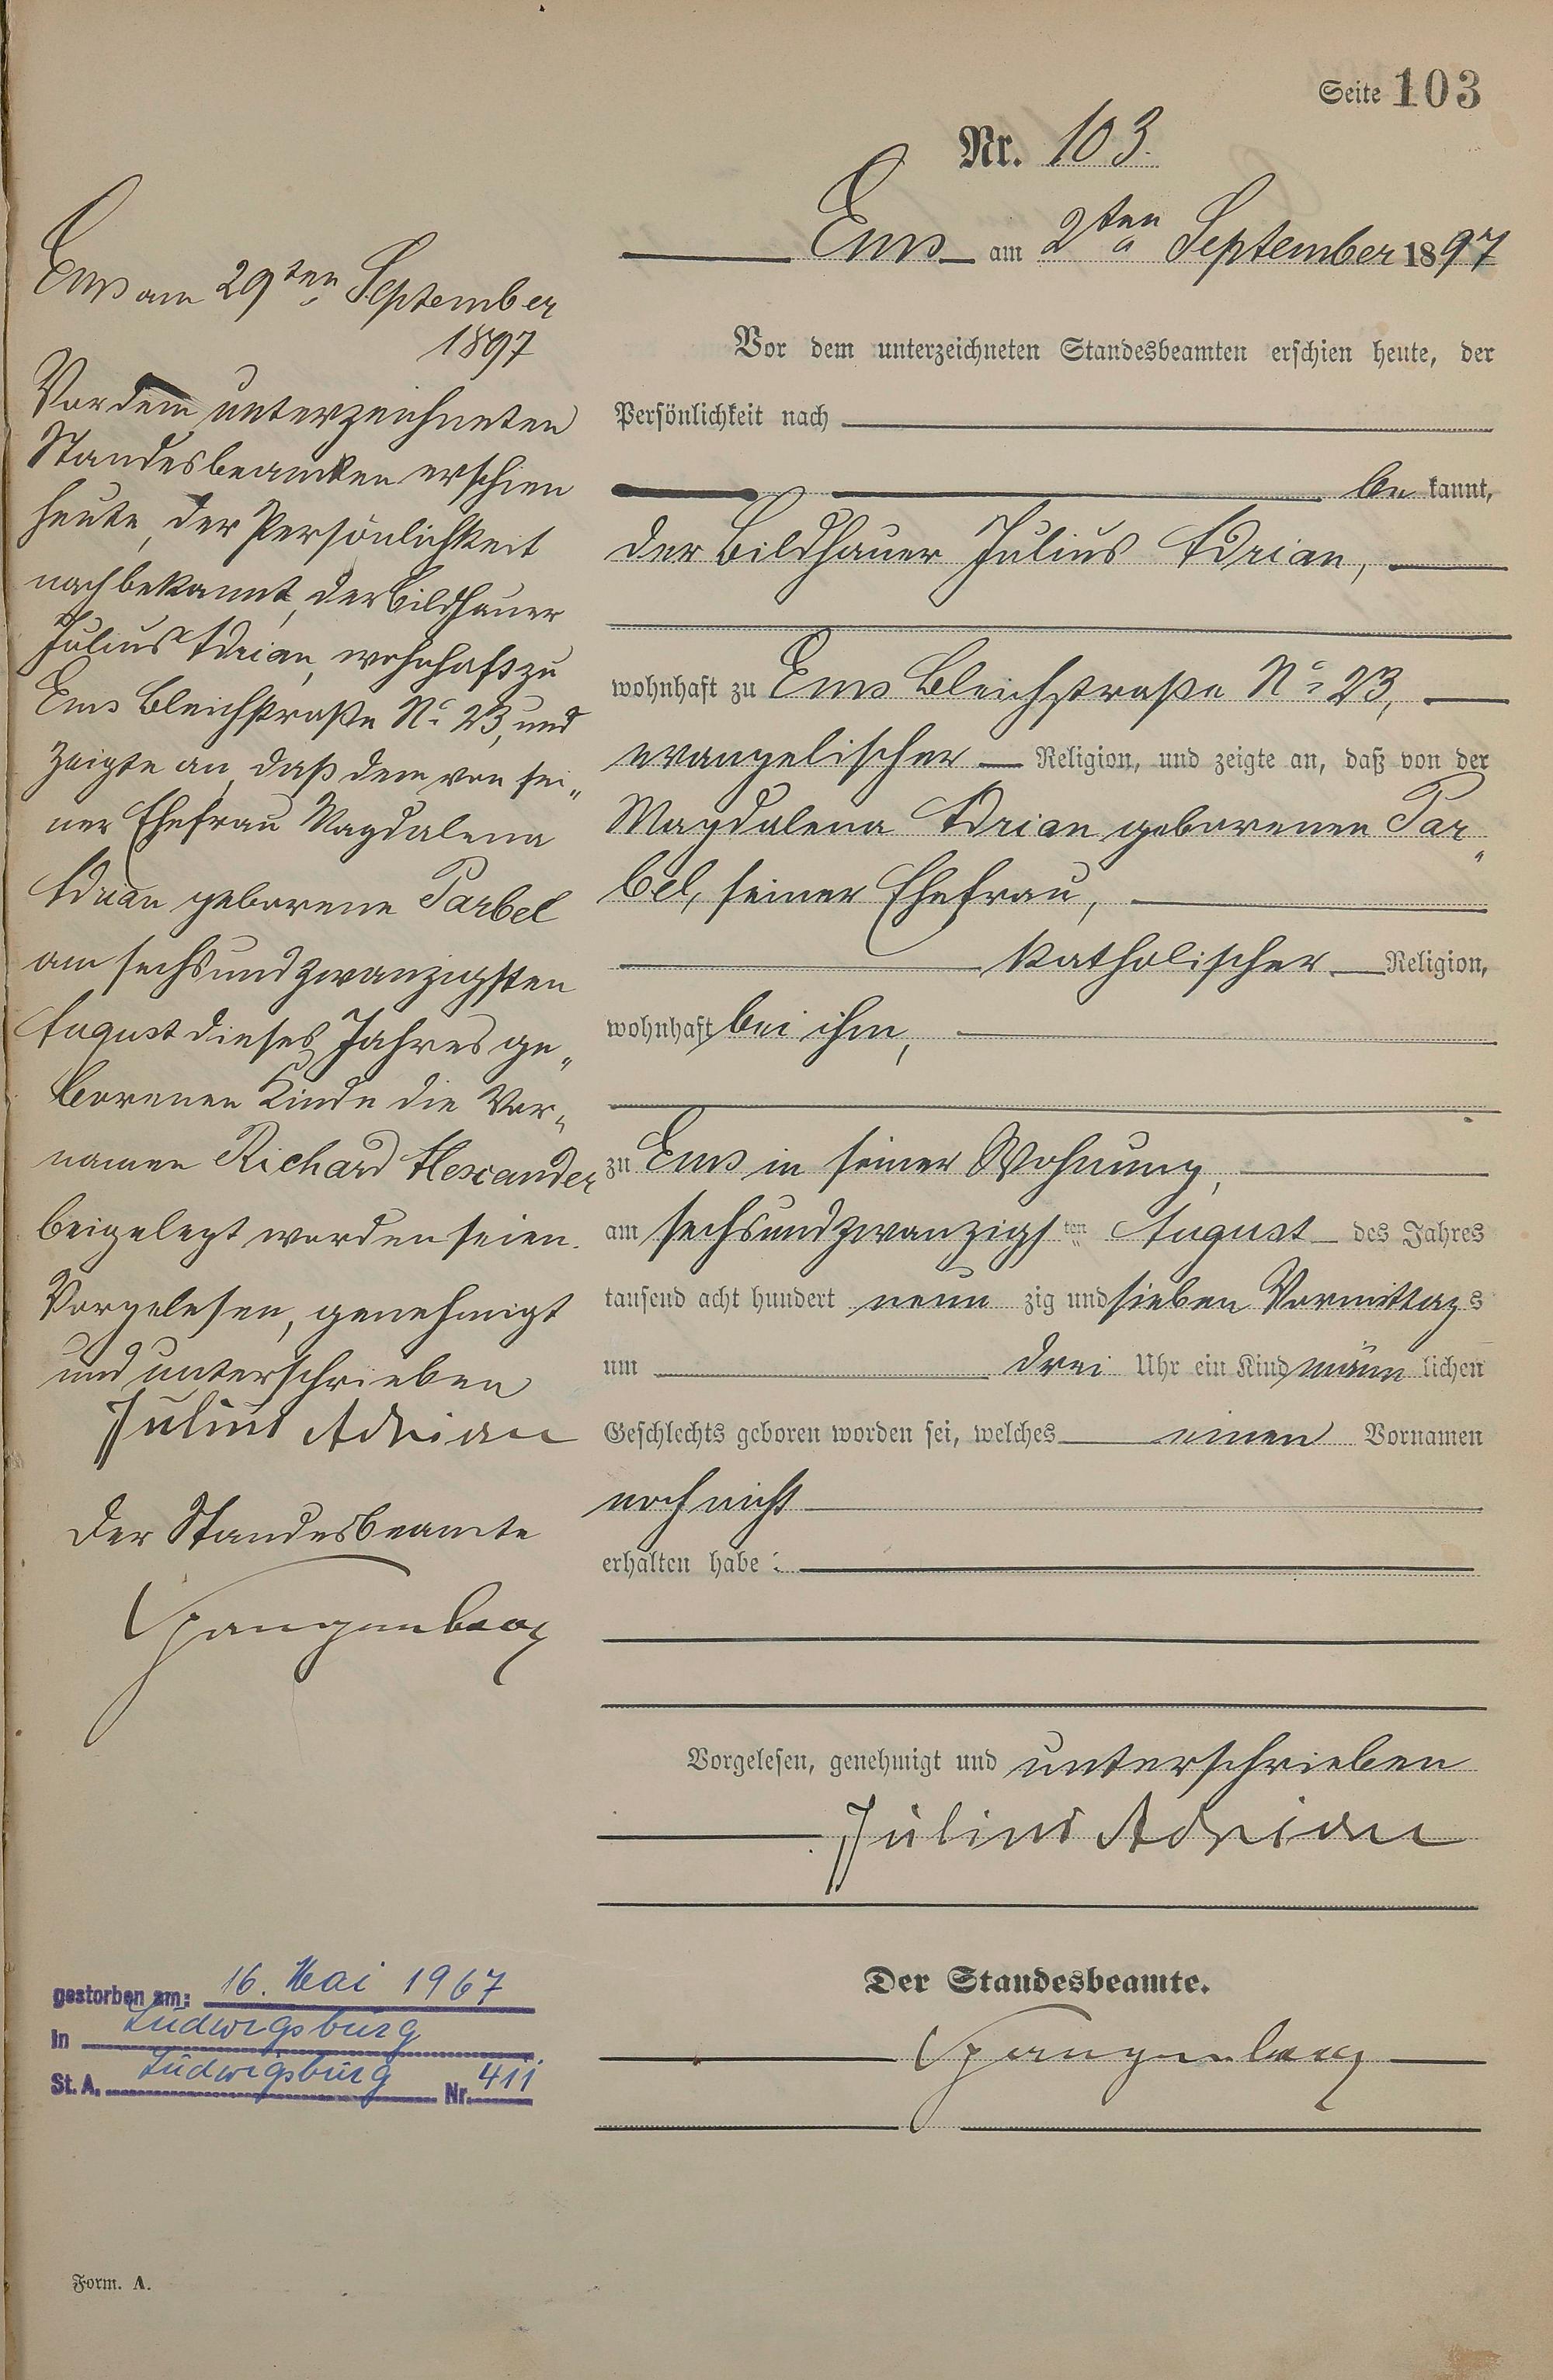 Seite 103
Nr. 103.
Ems am 2ten September 1897
Vor dem unterzeichneten Standesbeamten erschien heute, der
Persönlichkeit nach
be kannt,
der Bildhauer Julius Adrian,
wohnhaft zu Ems Bleichstraße No 23,
evangelischer Religion, und zeigte an, daß von der
Magdalena Adrian geborenen Par„
bel, seiner Ehefrau,
katholischer Religion,
wohnhaft bei ihm,
zu Ems in seiner Wohnung,
am sechsundzwanzigsten August des Jahres
tausend acht hundert neun zig und sieben Vormittags
um drei Uhr ein Kind männ lichen
Geschlechts geboren worden sei, welches einen Vornamen
noch nicht
erhalten habe
Vorgelesen, genehmigt und unterschrieben
Julius Adrian
Der Standesbeamte.
Spangenberg
Ems am 29ten September
1897
Vor dem unterzeichneten
Standesbeamten erschien
heute, der Persönlichkeit
nach bekannt, der Bildhauer
Julius Adrian, wohnhaft zu
Ems Bleichstraße No 23, und
zeigte an, daß dem von sei„
ner Ehefrau Magdalena
Adrian geborene Parbel
am sechsundzwanzigsten
August dieses Jahres ge„
borenen Kinde die Vor„
namen Richard Alexander
beigelegt worden seien.
Vorgelesen, genehmigt
und unterschrieben
Julius Adrian
Der Standesbeamte
Spangenberg
gestorben am: 16. Mai 1967
in Ludwigsburg
St. A. Ludwigsburg Nr. 411
Form. A.